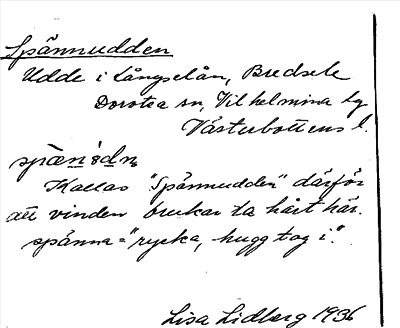 Spännudden
Udde i Långselån, Bredsele
Dorotea sn, Vilhelmina tg
Västerbottens l.
spæn`ùdn
Kallas "Spännudden" därför
att vinden brukar ta hårt här.
spänna = "rycka, hugg tag i".
Lisa Lidberg 1936